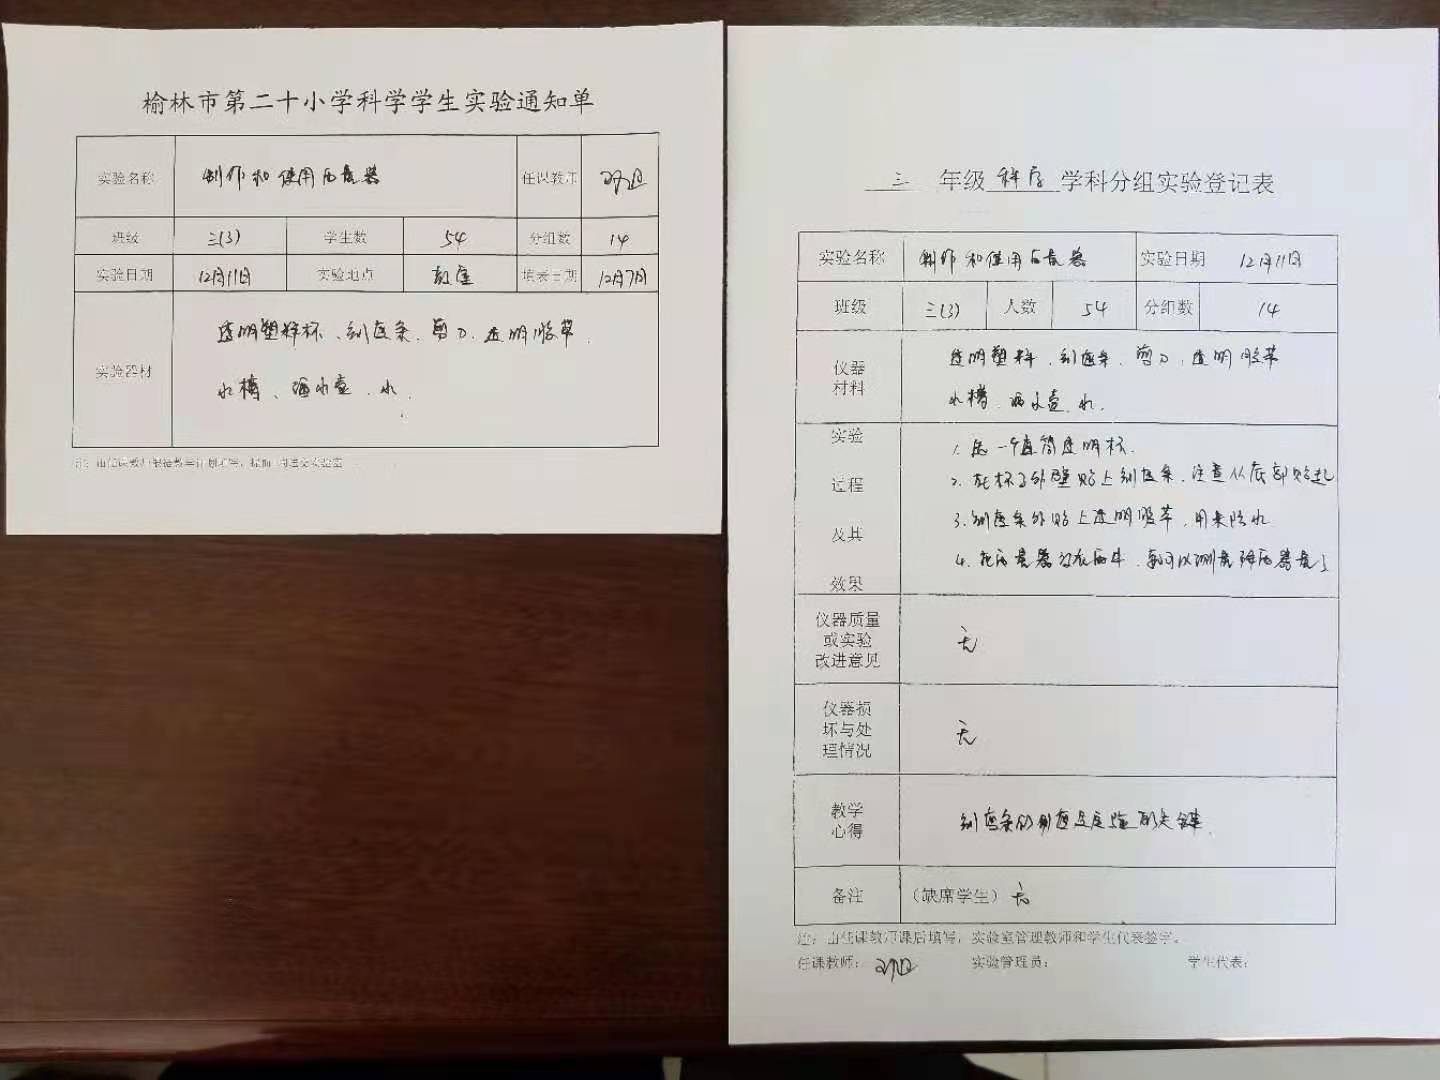 榆林市第二十小学科学学生实验通知单
实验名称 制作和使用雨量器 任课教师
班级 三(3) 学生数 54 分组数 14
实验日期 12月11日 实验地点 教室 填表日期 12月7日
实验器材
透明塑料杯、刻度条、剪刀、透明胶带、
水槽、洒水壶、水.
三 年级 科学 学科分组实验登记表
实验名称 制作和使用雨量器 实验日期 12月11日
班级 三(3) 人数 54 分组数 14
仪器
材料
透明塑料、刻度条、剪刀、透明胶带
水槽、洒水壶、水.
实验
过程
及其
效果
1. 选一个直筒透明杯.
2. 在杯子外壁贴上刻度条,注意从底部贴起
3. 刻度条外贴上透明胶带,用来防水
4. 把雨量器放在雨中,就可以测量降雨量
仪器质量
或实验
改进意见
无
仪器损
坏与处
理情况
无
教学
心得
刻度条的刻度是实验的关键.
备注 (缺席学生) 无
注:由任课教师课后填写,实验室管理教师和学生代表签字。
任课教师: 实验管理员: 学生代表: